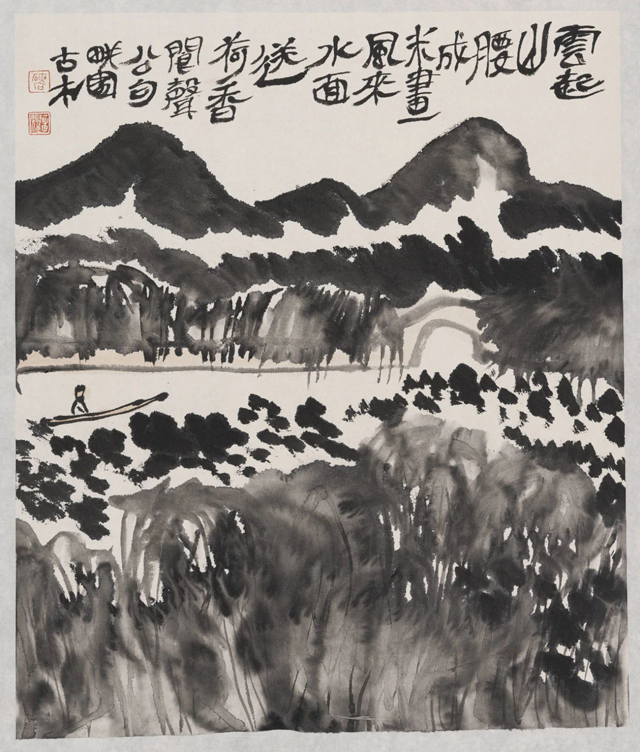 雲起
山
腰
成
米畫
風來
水面
送
荷香
聞聲
公句
園
古木